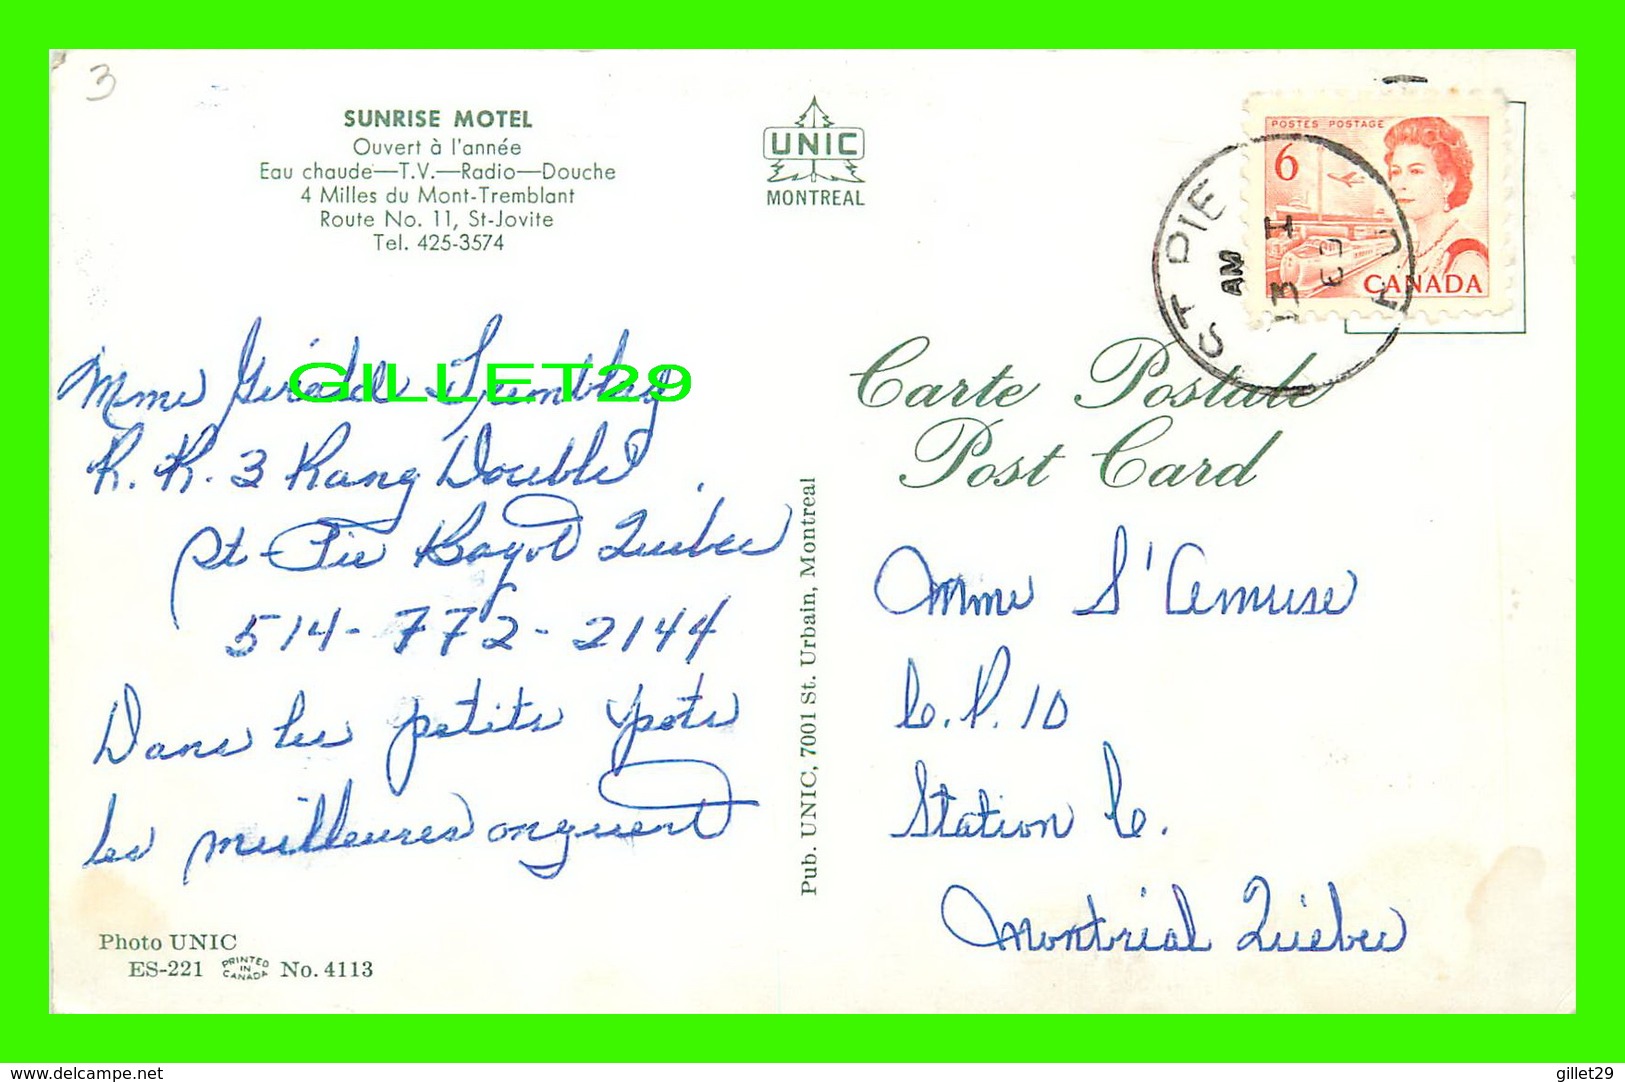 3
SUNRISE MOTEL
Ouvert à l'année
Eau chaude—T.V.—Radio—Douche
4 Milles du Mont-Tremblant
Route No. 11, St-Jovite
Tel. 425-3574
UNIC
MONTREAL
POSTES POSTAGE
6
CANADA
ST PIE
AM
13 I
Carte Postale
Post Card
GILLET29
Mme Tremblay
R. R. 3 Rang Double
St-Pie Bagot Québec
514-772-2144
Dans les petits pots
les meilleures onguent
Photo UNIC
ES-221 PRINTED IN CANADA No. 4113
Pub. UNIC, 7001 St. Urbain, Montreal
Mme S'
C.P. 10
Station C.
Montréal Québec
www.delcampe.net
gillet29